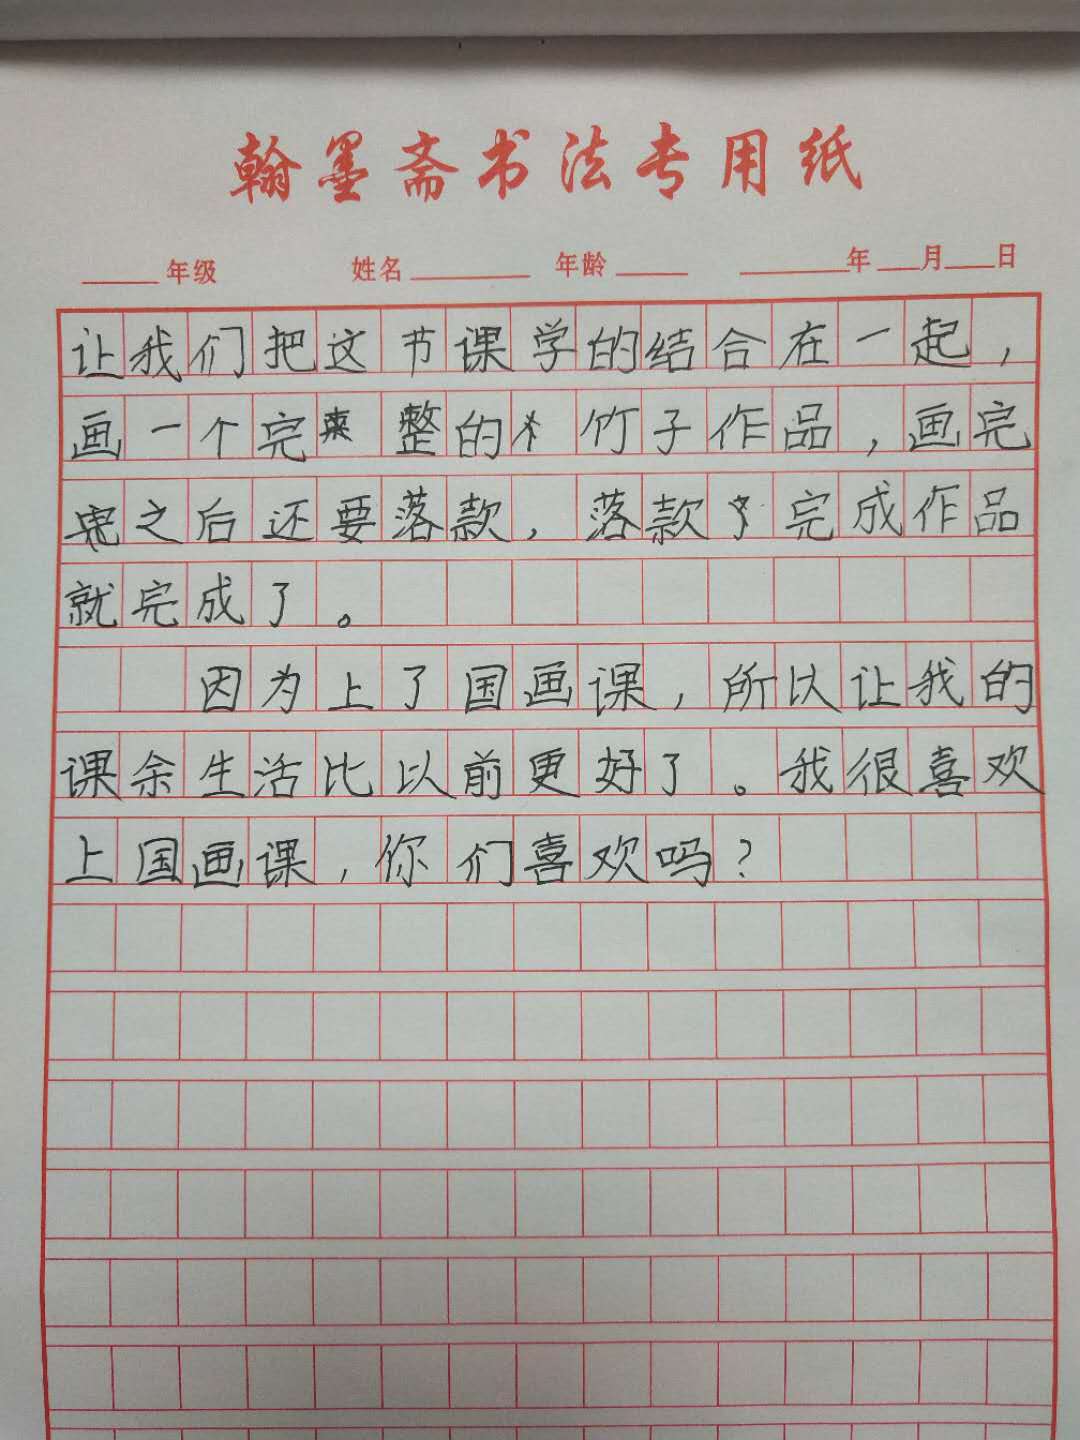 翰墨斋书法专用纸
年级 姓名 年龄 年 月 日
让我们把这节课学的结合在一起，
画一个完整的竹子作品，画完
之后还要落款，落款完成作品
就完成了。
因为上了国画课，所以让我的
课余生活比以前更好了。我很喜欢
上国画课，你们喜欢吗？